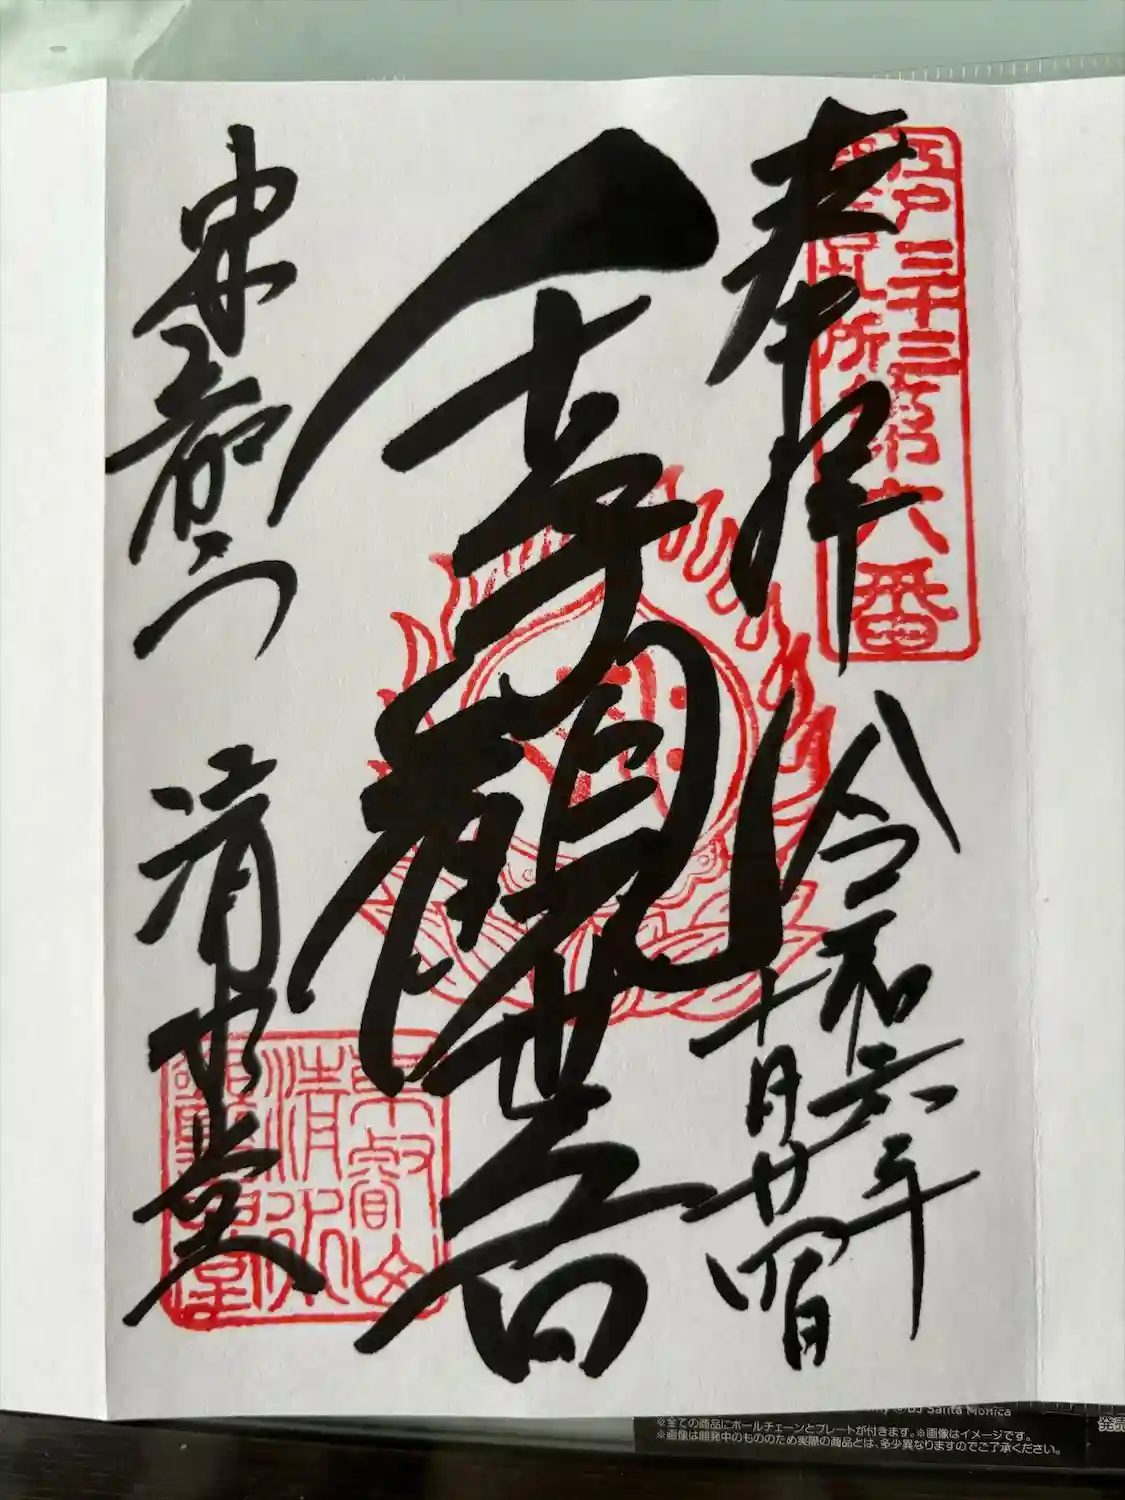 江戸三十三
札所
第六番
奉拝
令和六年
十月廿四日
千手觀世音
清水堂
東叡山
清水
觀音堂
Santa Monica
※全ての商品にボールチェーンとプレートが付きます。※画像はイメージです。
※画像は開発中のもののため実際の商品とは、多少異なりますのでご了承ください。
発売